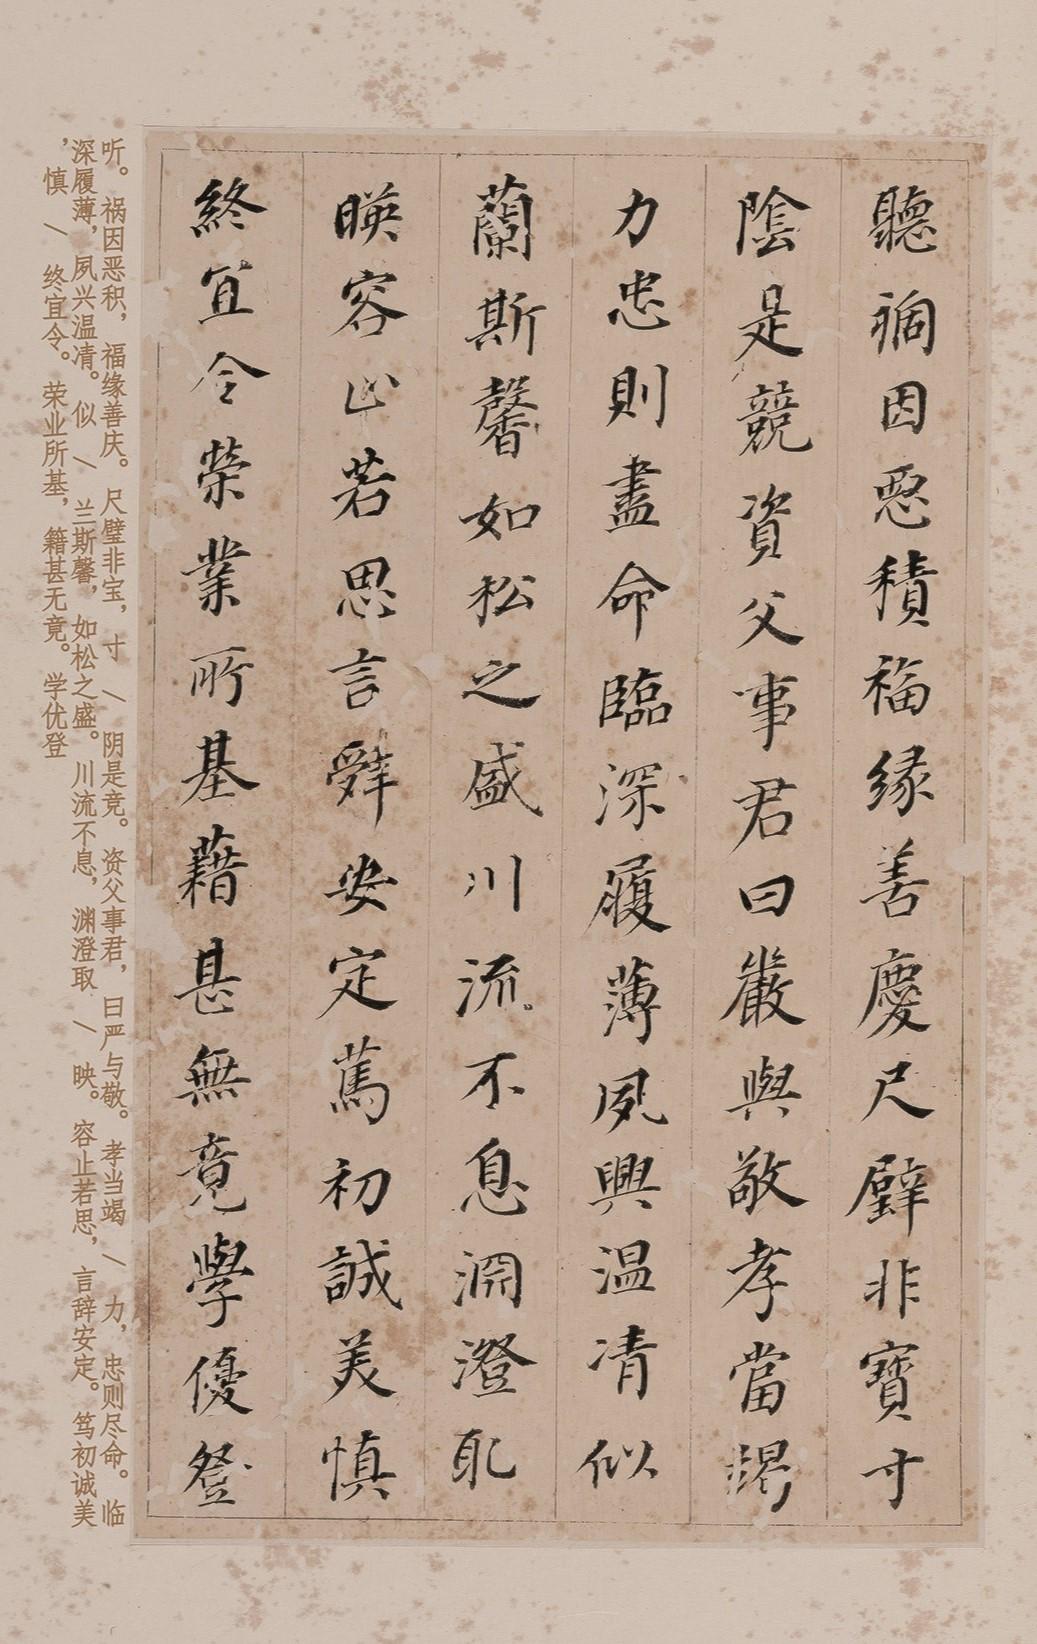 聽禍因惡積福緣善慶尺璧非寶寸
陰是競資父事君曰嚴與敬孝當竭
力忠則盡命臨深履薄夙興温凊似
蘭斯馨如松之盛川流不息淵澄取
暎容止若思言辭安定篤初誠美慎
終宜令榮業所基藉甚無竟學優登
听。祸因恶积，福缘善庆。尺璧非宝，寸 / 阴是竞。资父事君，曰严与敬。孝当竭 / 力，忠则尽命。临
深履薄，夙兴温凊。似 / 兰斯馨，如松之盛。川流不息，渊澄取 / 映。容止若思，言辞安定。笃初诚美
，慎 / 终宜令。荣业所基，籍甚无竟。学优登